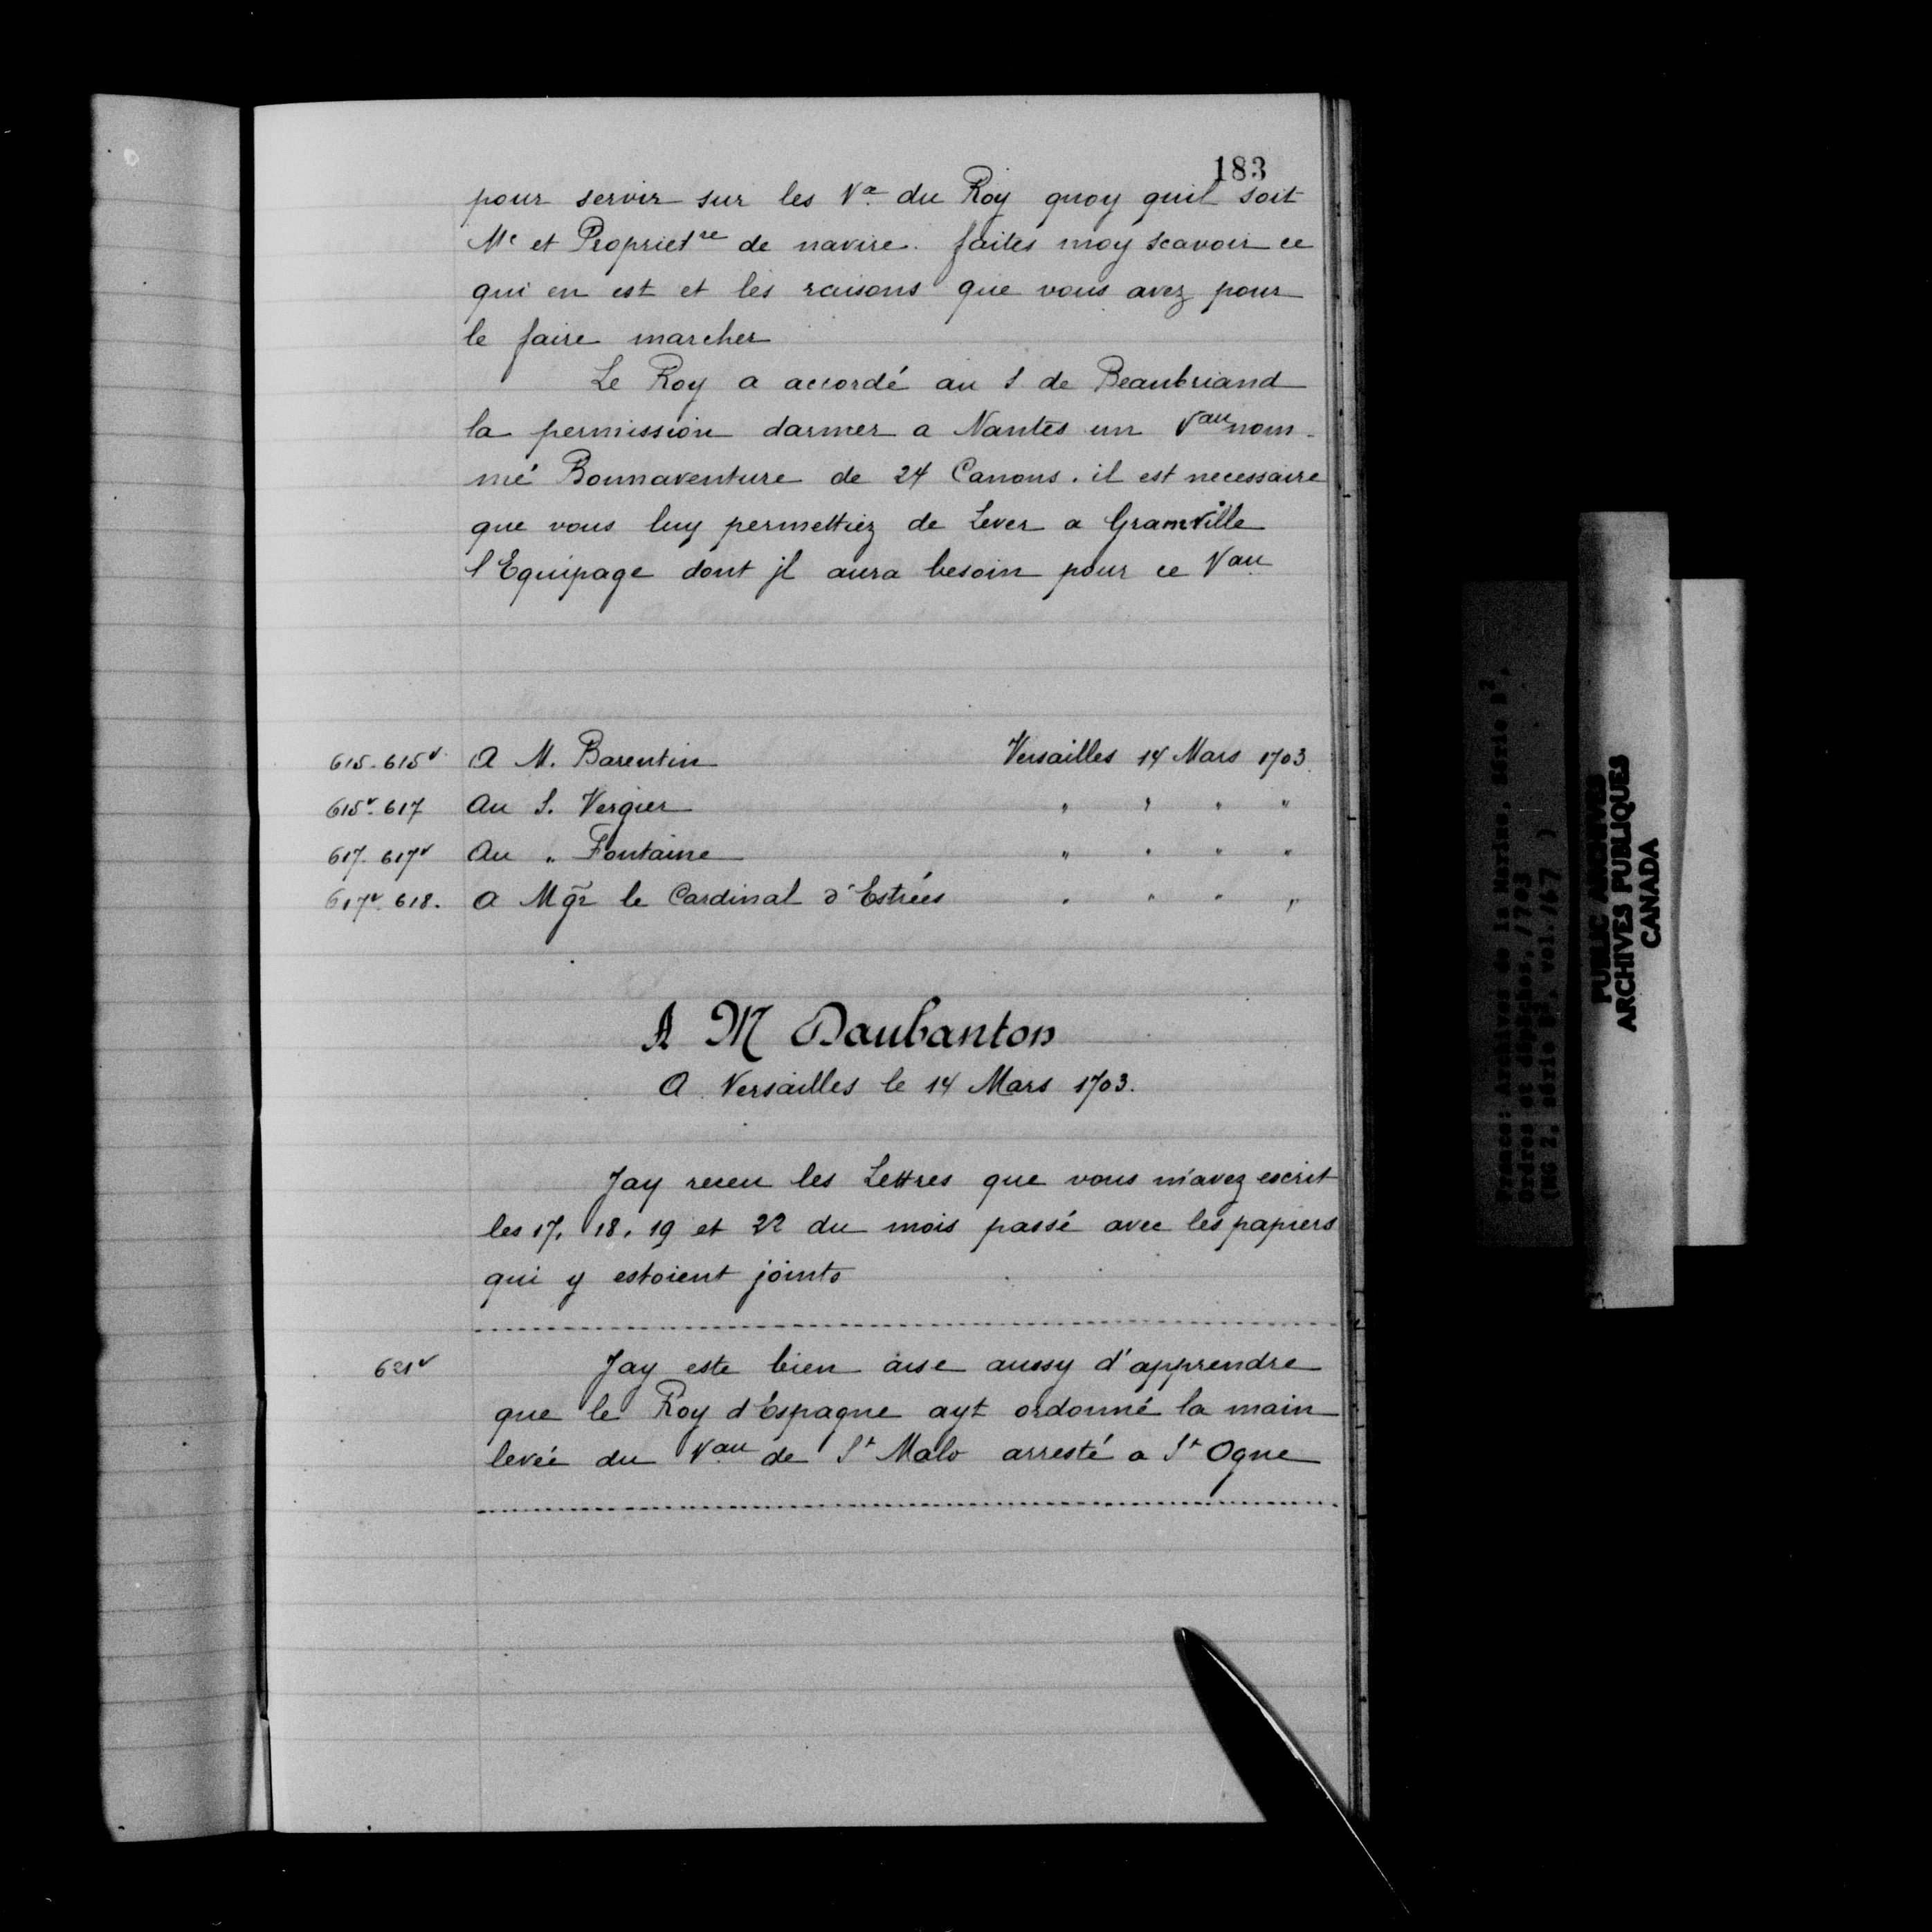 183
pour servir sur les Vx du Roy quoy quil soit
Me et Proprietre de navire. faites moy scavoir ce
qui en est et les raisons que vous avez pour
le faire marcher
Le Roy a accordé au S. de Beaubriand
la permission darmer a Nantes un Vau nom-
mé Bonnaventure de 24 Canons. il est necessaire
que vous luy permettiez de Lever a Granville
l'Equipage dont jl aura besoin pour ce Vau
615. 615v A M. Barentin Versailles 14 Mars 1703.
615v. 617 Au S. Vergier " " " "
617. 617v Au " Fontaine " " " "
617v. 618. A Mgr le Cardinal d'Estrées " " " "
A M Daubanton
A Versailles le 14 Mars 1703.
Jay receu les Lettres que vous m'avez escrit
les 17, 18, 19 et 22 du mois passé avec les papiers
qui y estoient joints
621v Jay este bien aise aussy d'apprendre
que le Roy d'Espagne ayt ordonné la main
levée du Vau de St Malo arresté a St Ogne
France: Archives de la Marine, Série B2,
Ordres et dépêches, 1703
(MG 2, série B2, vol. 167 )
PUBLIC ARCHIVES
ARCHIVES PUBLIQUES
CANADA